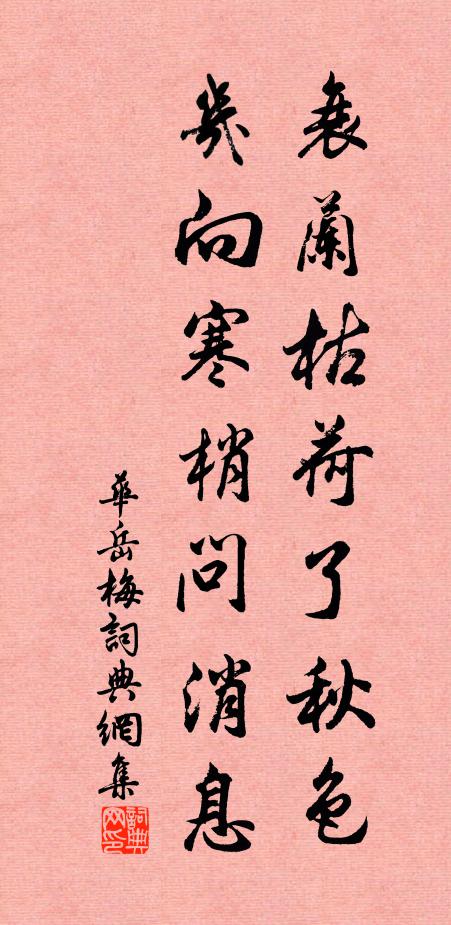 衰蘭枯荷了秋色
幾向寒梢問消息
華岳梅詞典網集
詞典網印